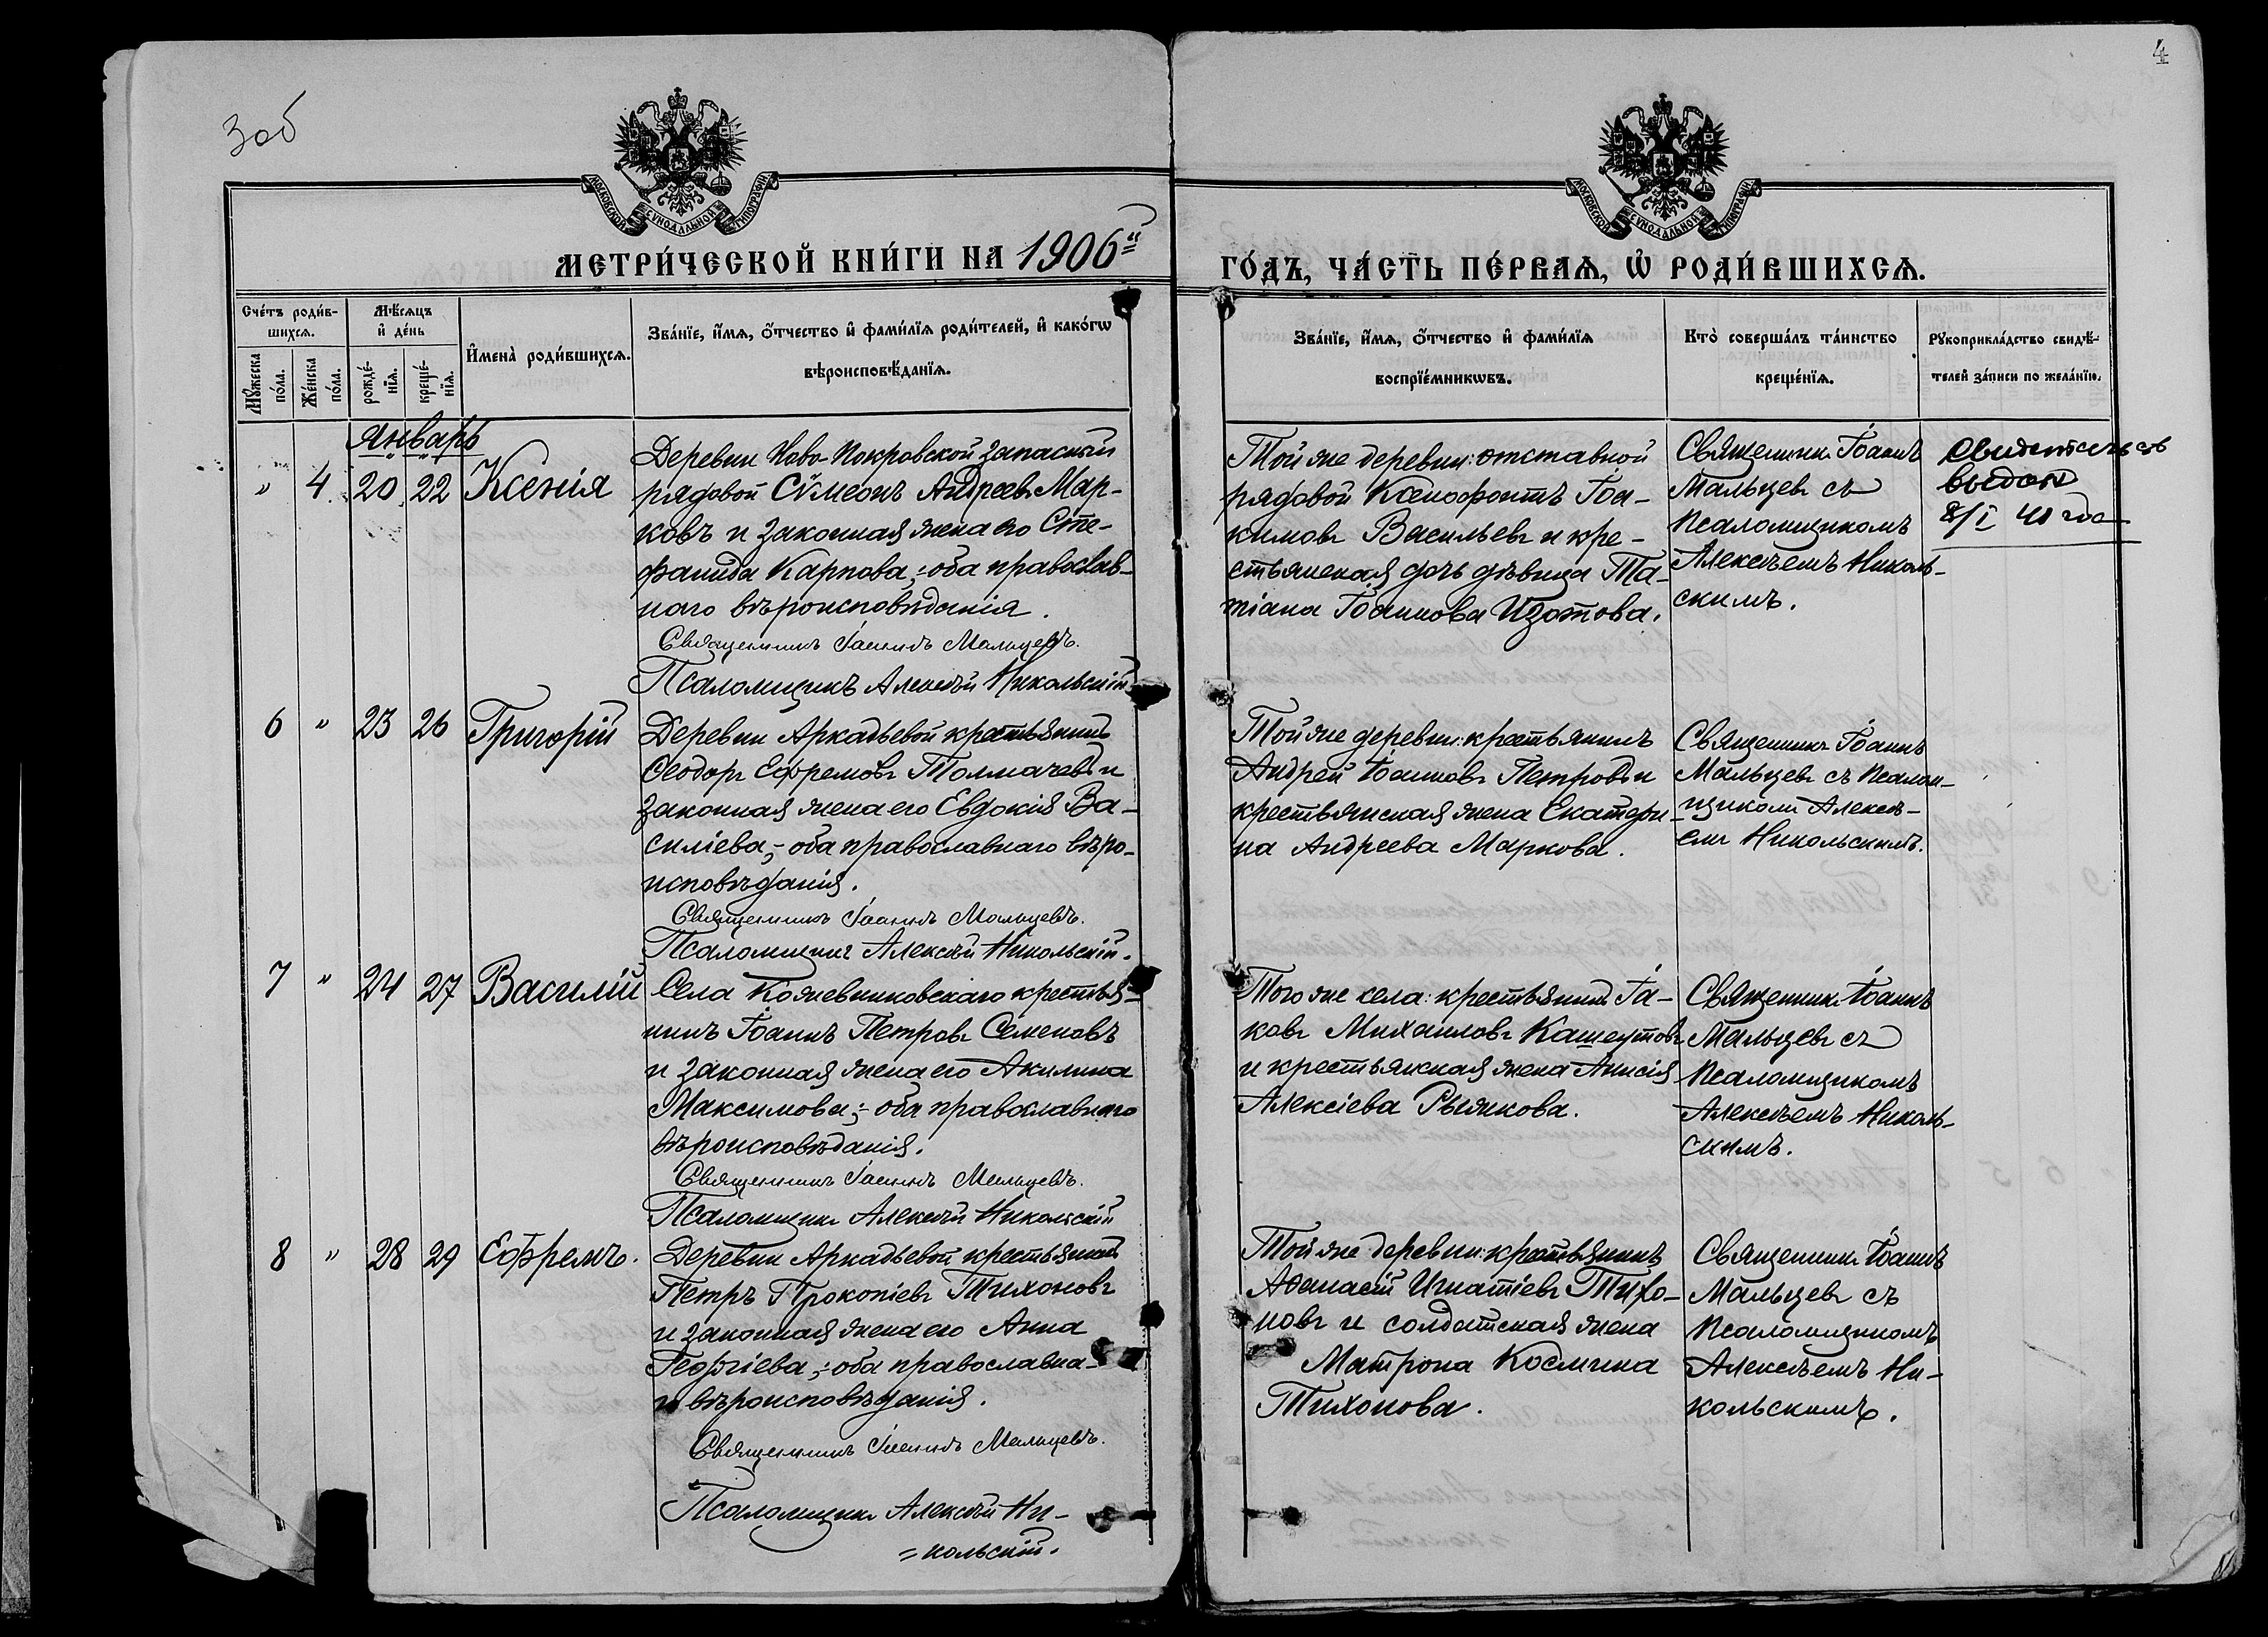 3об
4
МОСКОВСКОЙ СѴНОДАЛЬНОЙ ТИПОГРАФІИ
МОСКОВСКОЙ СѴНОДАЛЬНОЙ ТИПОГРАФІИ
МЕТРИ́ЧЕСКОЙ КНИ́ГИ НА 1906й
ГО́ДЪ, ЧА́СТЬ ПЕ́РВАѦ, Ѽ РОДИ́ВШИХСѦ.
Сче́тъ роди́в-
шихсѧ.
Мꙋ́жеска по́ла.
Же́нска по́ла.
Мѣ́сѧцъ
и҆ де́нь
рожде́-
нїѧ.
креще́-
нїѧ.
И҆мена̀ роди́вшихсѧ.
Зва́нїе, и҆́мѧ, ѻ҆́тчество и҆ фами́лїѧ роди́телей, и҆ како́гѡ
вѣроисповѣ́данїѧ.
Зва́нїе, и҆́мѧ, ѻ҆́тчество и҆ фами́лїѧ
воспрїе́мникѡвъ.
Кто̀ соверша́лъ та́инство
креще́нїѧ.
Рꙋкоприкла́дство свидѣ́-
телей за́писи по жела́нїю.
Январь
" 4 20 22 Ксенія
Деревни Ново-Покровской запасный
рядовой Сѵмеонъ Андреевъ Мар-
ковъ и законная жена его Сте-
фанида Карпова; - оба православ-
наго вѣроисповѣданія.
Священникъ Іоаннъ Мальцевъ.
Псаломщикъ Алексѣй Никольскій
Той же деревни: отставной
рядовой Ксенофонтъ Іоа-
кимовъ Васильевъ и кре-
стьянская дочь дѣвица Та-
тіана Іоаннова Изотова.
Священникъ Іоаннъ
Мальцевъ съ
псаломщикомъ
Алексѣемъ Николь-
скимъ.
Свидетельств
выдан
8/I 41 года
6 " 23 26 Григорій
Деревни Аркадьевой крестьянинъ
Ѳеодоръ Ефремовъ Толмачевъ и
законная жена его Евдокія Ва-
силіева; - оба православнаго вѣро-
исповѣданія.
Священникъ Іоаннъ Мальцевъ.
Псаломщикъ Алексѣй Никольскій.
Той же деревни: крестьянинъ
Андрей Іоанновъ Петровъ и
крестьянская жена Екатери-
на Андреева Маркова.
Священникъ Іоаннъ
Мальцевъ съ псалом-
щикомъ Алексѣ-
емъ Никольскимъ.
7 " 24 27 Василій
Села Кожевниковскаго крестья-
нинъ Іоаннъ Петровъ Семеновъ
и законная жена его Акилина
Максимова; - оба православнаго
вѣроисповѣданія.
Священникъ Іоаннъ Мальцевъ.
Псаломщикъ Алексѣй Никольскій
Того же села: крестьянинъ Іа-
ковъ Михаиловъ Кашеутовъ
и крестьянская жена Анисія
Алексіева Рыжкова.
Священникъ Іоаннъ
Мальцевъ съ
псаломщикомъ
Алексѣемъ Николь-
скимъ.
8 " 28 29 Ефремъ.
Деревни Аркадьевой крестьянинъ
Петръ Прокопіевъ Тихоновъ
и законная жена его Анна
Георгіева; - оба православна-
го вѣроисповѣданія.
Священникъ Іоаннъ Мальцевъ.
Псаломщикъ Алексѣй Ни-
=кольскій.
Той же деревни: крестьянинъ
Аѳанасій Игнатіевъ Тихо-
новъ и солдатская жена
Матрона Космина
Тихонова.
Священникъ Іоаннъ
Мальцевъ съ
псаломщикомъ
Алексѣемъ Ни-
кольскимъ.